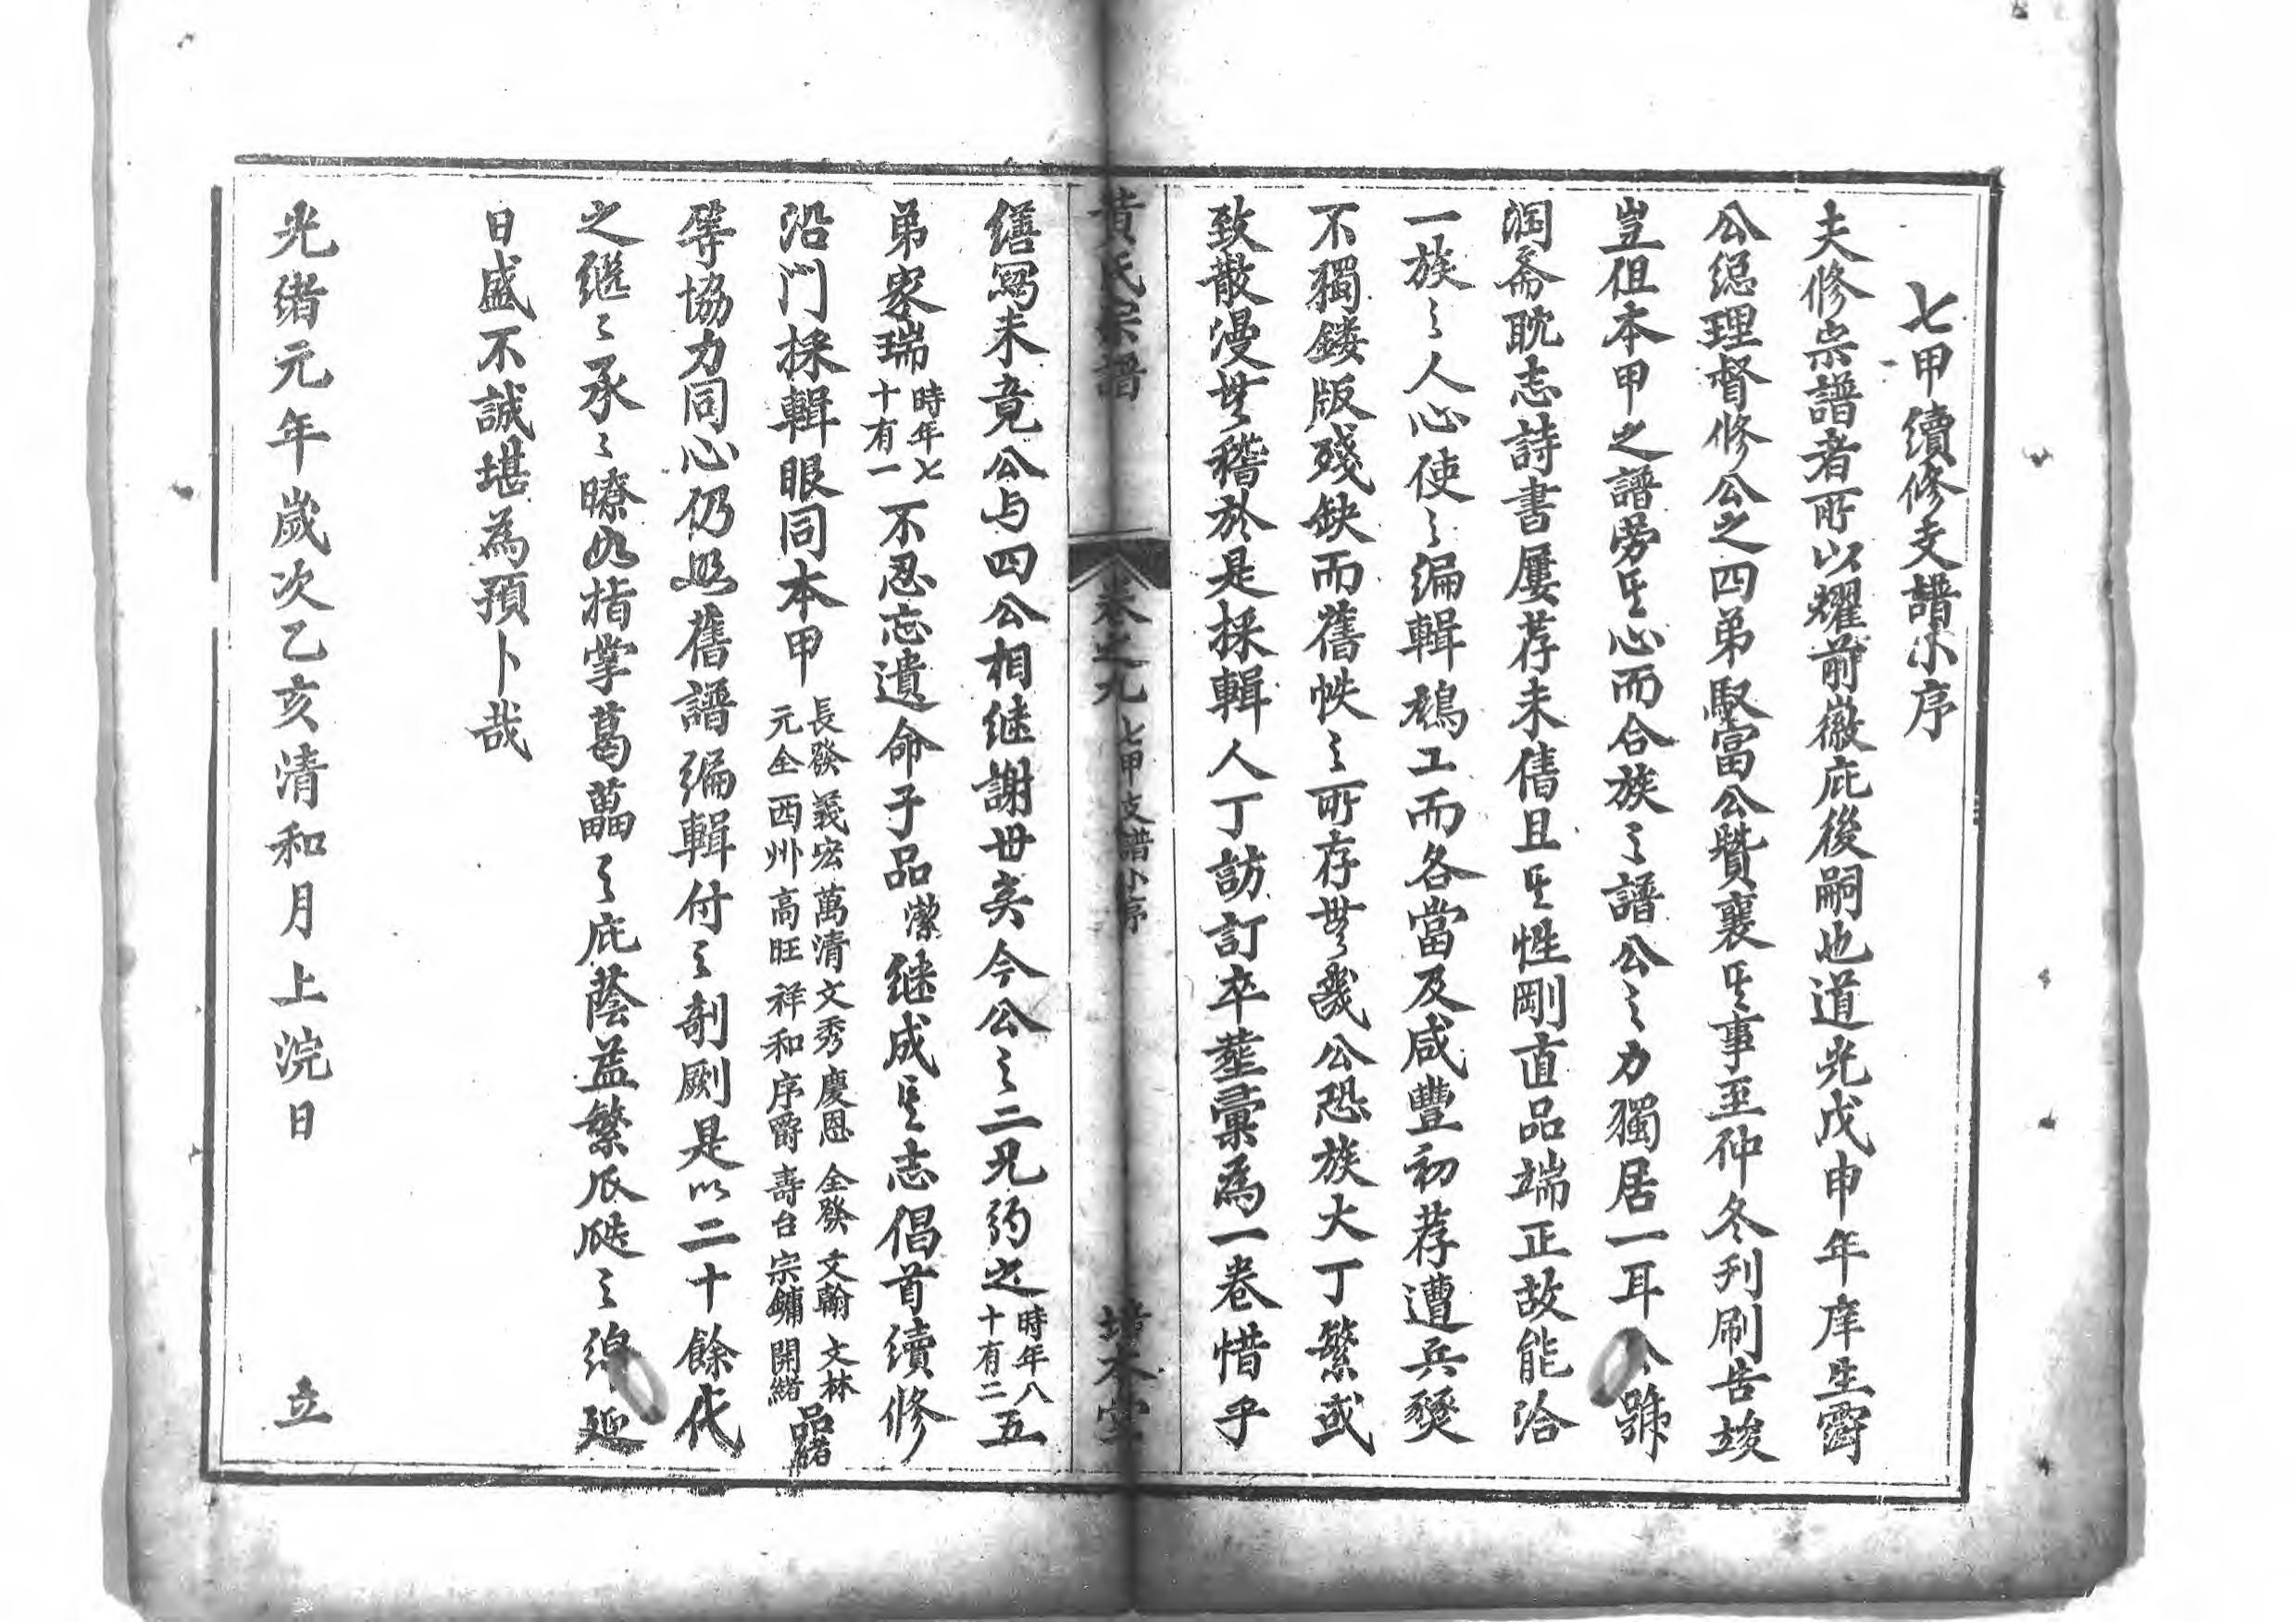 七甲續修支譜小序
夫修宗譜者所以耀前徽庇後嗣也道光戊申年庠生霨
公總理督修公之四弟馭富公贊襄其事至仲冬刊刷告竣
豈但本甲之譜勞其心而合族之譜公之力獨居一耳公號
润斋耽志詩書屢荐未售且其性剛直品端正故能洽
一族之人心使之编輯鵝工而各當及咸豐初荐遭兵燹
不獨鏤版殘缺而舊帙之所存無幾公恐族大丁繁或
致散漫無稽於是採輯人丁訪訂卒塋彙為一卷惜乎
黄氏宗譜
卷之九 七甲支譜小序
本堂
繕寫未竟公与四公相継謝世矣今公之二兄药之時年八十有二五
弟家瑞時年七十有一不忍忘遺命子品潔継成其志倡首續修
沿門採輯眼同本甲長發 義宏 萬清 文秀 慶恩 金發 文翰 文林 元全 西州 高旺 祥和 序爵 壽台 宗鏞 開緒 品緒
等協力同心仍照舊譜编輯付之剞劂是以二十餘代
之継之承之瞭如指掌葛藟之庇蔭益繁瓜瓞之綿延
日盛不誠堪為預卜哉
光緒元年歲次乙亥清和月上浣日 立